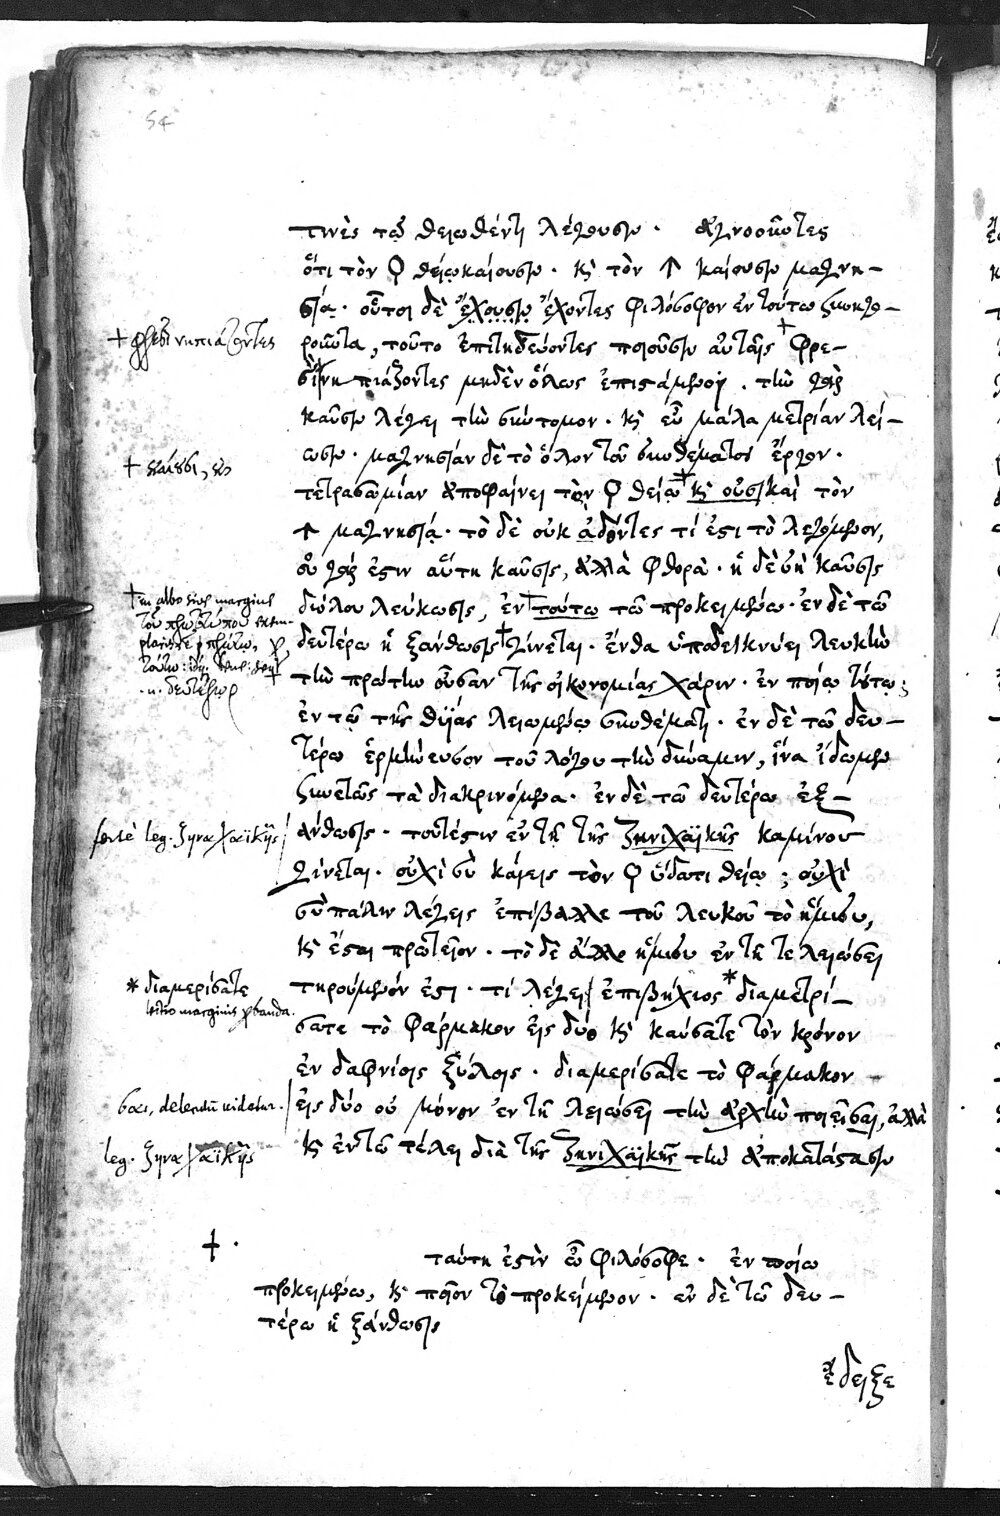 54
τινὲς τῷ θειωθέντι λέγουσιν. ἀγνοοῦντες
ὅτι τὸν ☿ θείῳ καίουσιν. κὶ τὸν ↑ καίουσιν μαγνη-
σίᾳ. οὗτοι δὲ ἔχουσιν ἔχοντες φιλόσοφον ἐν τούτῳ συνηγο-
ροῦντα, τοῦτο ἐπιτηδεύοντες ποιοῦσιν αὐταῖς + φρε-
σὶ νηπιάζοντες μηδὲν ὅλως ἐπιστάμενοι. τὴν γὰρ
καῦσιν λέγει τὴν σύντομον. κὶ εὖ μάλα μετρίαν λεί-
ωσιν. μαγνησίαν δὲ τὸ ὅλον τοῦ συνθέματος ἔργον.
τετρασωμίαν ἀποφαίνει τὸν ☿ θείῳ κὶ οὐσι καὶ τὸν
↑ μαγνησίᾳ. τὸ δὲ οὐκ ἀδόντες τί ἐστι τὸ λεγόμενον,
οὐ γάρ ἐστιν αὕτη καῦσις, ἀλλὰ φθορὰ. ἡ δὲ καῦσις
διόλου λεύκωσις, ἐν + τούτῳ τῷ προκειμένῳ. ἐν δὲ τῷ
δευτέρῳ ἡ ξάνθωσις + γίνεται. ἔνθα ὑποδεικνύει λευκὴν
τὴν πρώτην οὖσαν τῆς οἰκονομίας χάριν. ἐν ποίῳ τούτῳ;
ἐν τῷ τῆς θείας λειωμένῳ συνθέματι. ἐν δὲ τῷ δευ-
τέρῳ ἑρμήνευσον τοῦ λόγου τὴν δύναμιν, ἵνα ἴδωμεν
συνετῶς τὰ διακρινόμενα. ἐν δὲ τῷ δευτέρῳ ἐξ-
άνθωσις. τουτέστιν ἐν τῇ τῆς ζηνιχαϊκῆς καμίνου
γίνεται. οὐχὶ σὺ καίεις τὸν ☿ ὕδατι θείῳ; οὐχὶ
σὺ πάλιν λέγεις ἐπίβαλλε τοῦ λευκοῦ τὸ ἥμισυ,
κὶ ἔσται πρωτεῖον. τὸ δὲ ἄλλο ἥμισυ ἐν τῇ τελειώσει
τηρούμενόν ἐστι. τί λέγει ἐπιβήχιος * διαμετρί-
σατε τὸ φάρμακον εἰς δύο κὶ καύσατε τὸν κρόνον
ἐν δαφνίοις ξύλοις. διαμερίσατε τὸ φάρμακον
εἰς δύο οὐ μόνον ἐν τῇ λειώσει τὴν ἀρχὴν ποιεῖσαι, ἀλλὰ
κὶ ἐν τῷ τέλει διὰ τῆς ζηνιχαϊκῆς τὴν ἀποκατάστασιν
+ φρεσὶ νηπιάζοντες
+ in albo
forte leg. ζηνα
* διαμερίσατε
σαι, delendū uidetur.
leg. ζηνα
+ .
ταύτη ἐστὶν ὦ φιλόσοφε. ἐν ποίῳ
προκειμένῳ, κὶ ποῖον τὸ προκείμενον. ἐν δὲ τῷ δευ-
τέρῳ ἡ ξάνθωσις
ἔδειξε